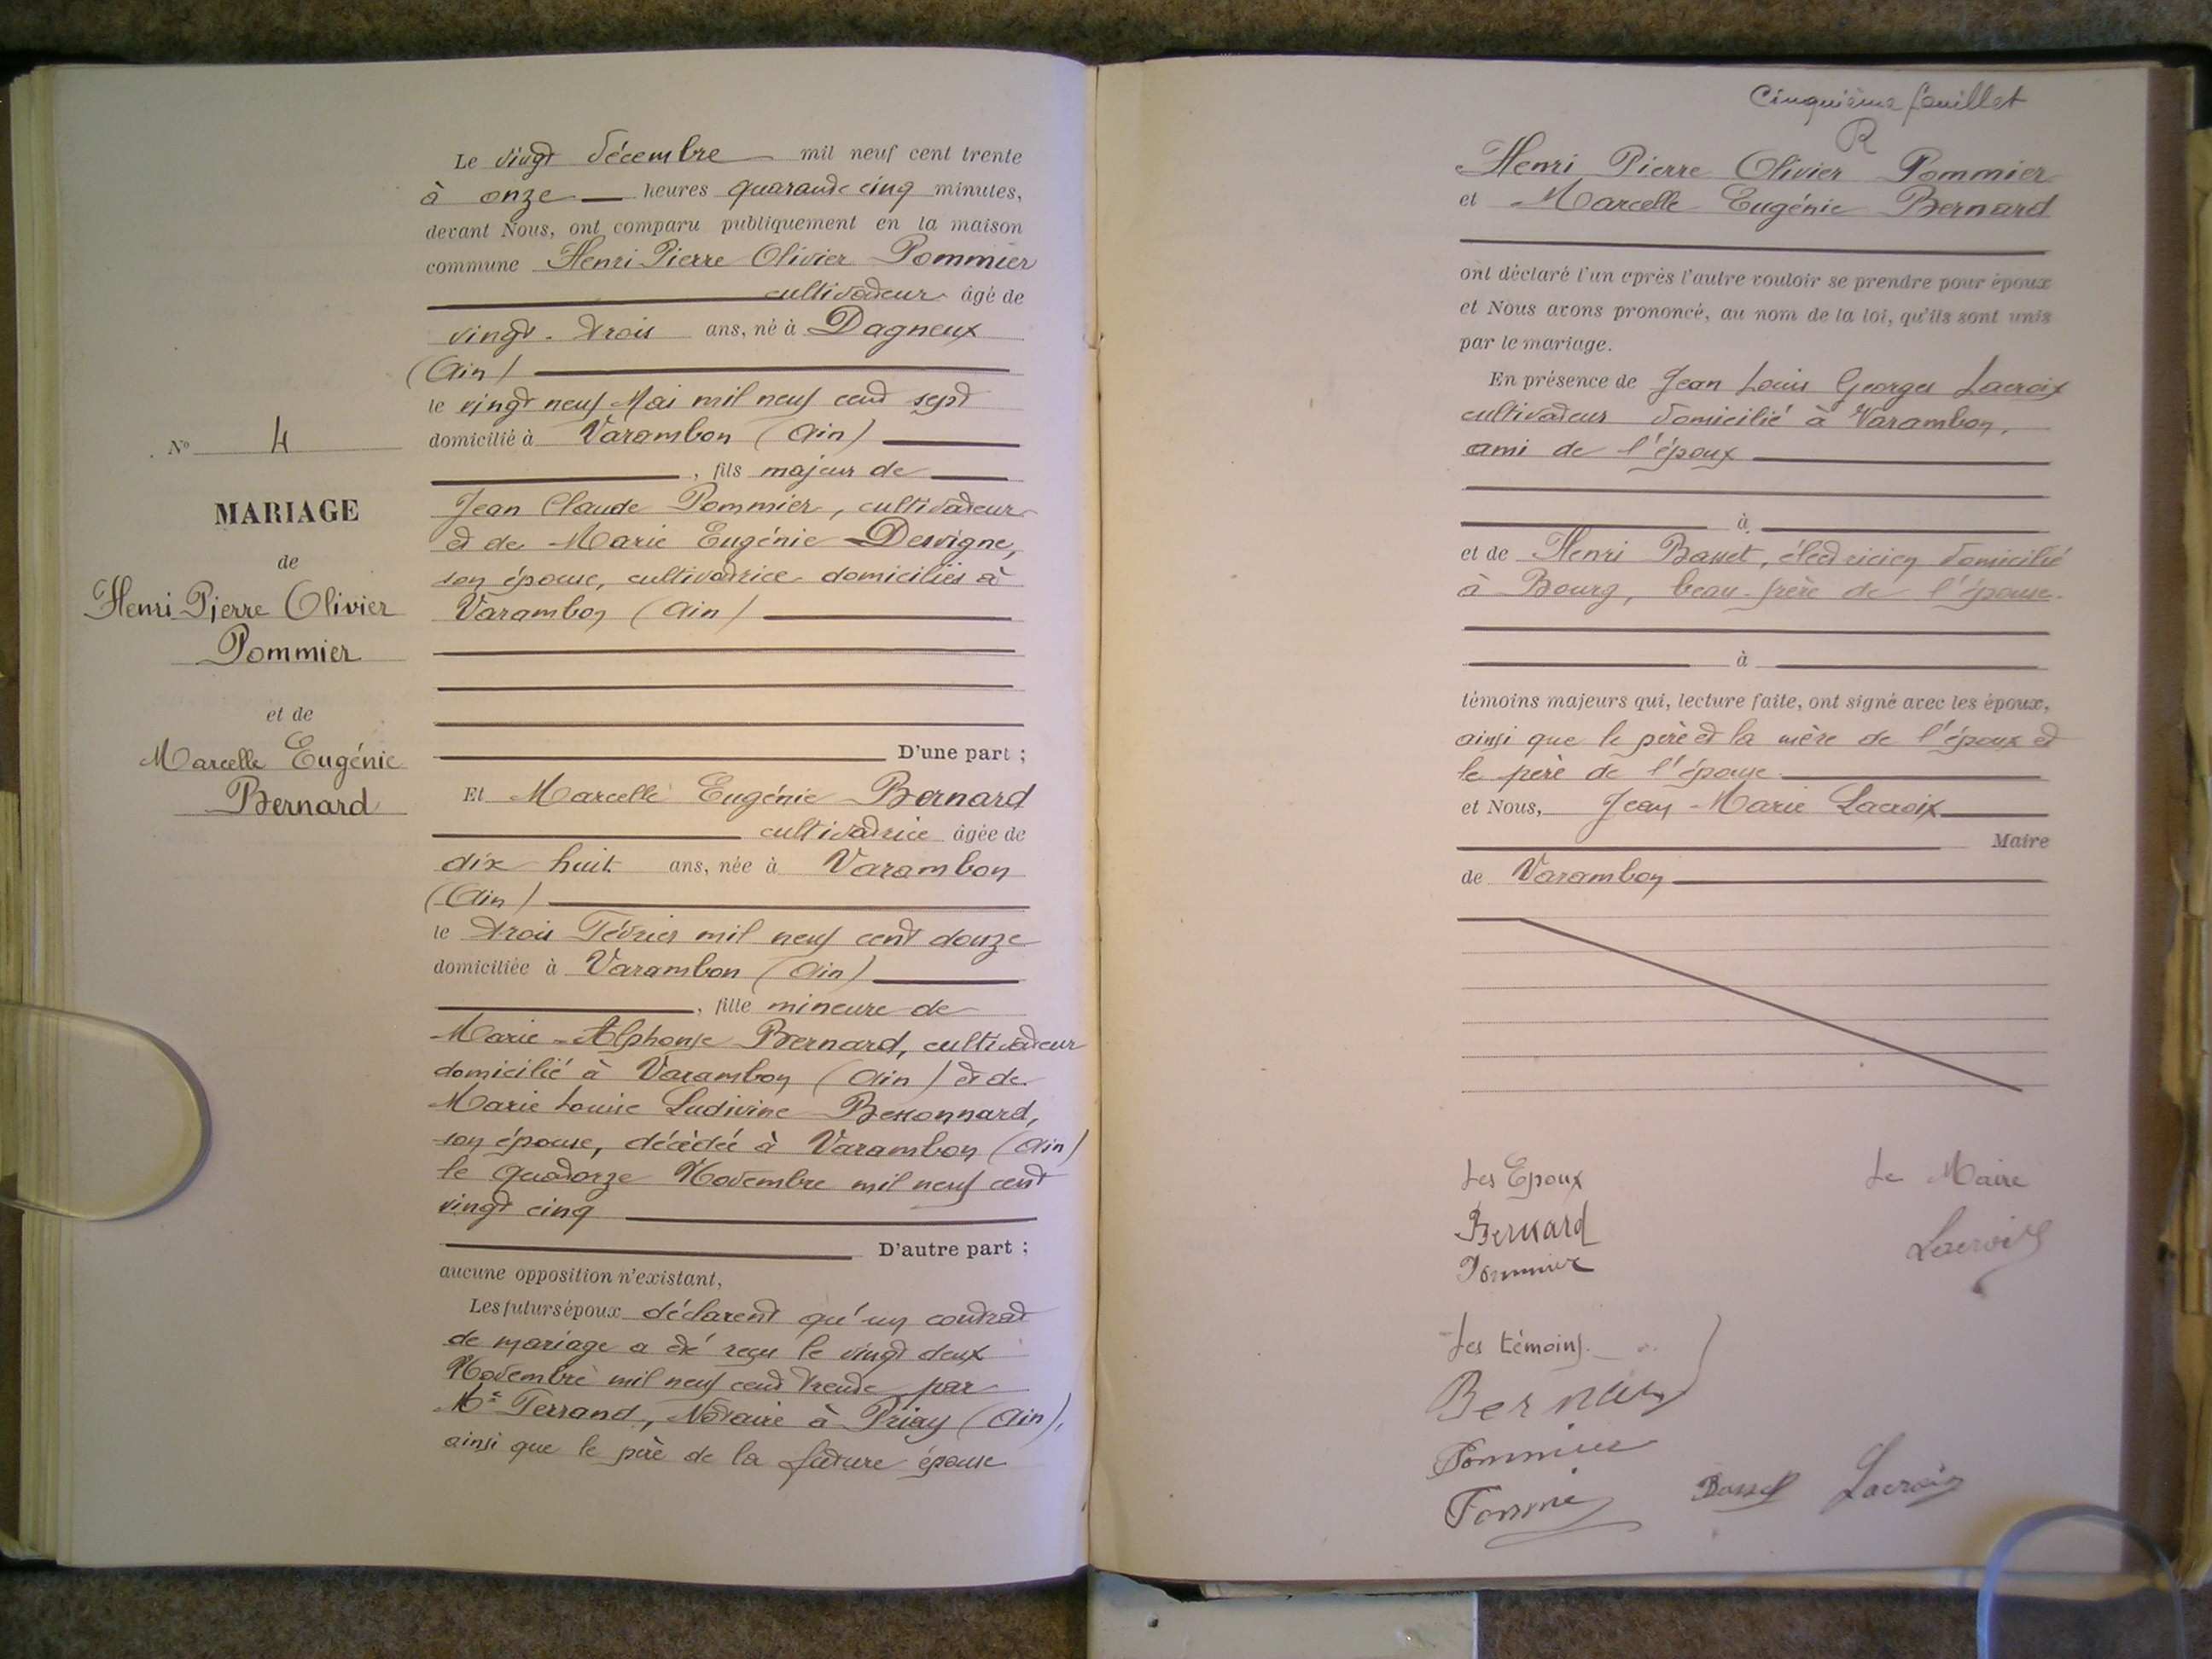 Nº 4
MARIAGE
de
Henri Pierre Olivier
Pommier
et de
Marcelle Eugénie
Bernard
Le vingt décembre mil neuf cent trente
à onze heures quarante cinq minutes,
devant Nous, ont comparu publiquement en la maison
commune Henri Pierre Olivier Pommier
cultivateur âgé de
vingt-trois ans, né à Dagneux
(Ain)
le vingt neuf Mai mil neuf cent sept
domicilié à Varambon (Ain)
, fils majeur de
Jean Claude Pommier, cultivateur
et de Marie Eugénie Desvigne,
son épouse, cultivatrice domiciliés à
Varambon (Ain)
D'une part ;
Et Marcelle Eugénie Bernard
cultivatrice âgée de
dix huit ans, née à Varambon
(Ain)
le trois Février mil neuf cent douze
domiciliée à Varambon (Ain)
, fille mineure de
Marie-Alphonse Bernard, cultivateur
domicilié à Varambon (Ain) et de
Marie Louise Ludivine Bessonnard,
son épouse, décédée à Varambon (Ain)
le quatorze Novembre mil neuf cent
vingt cinq
D'autre part ;
aucune opposition n'existant,
Les futurs époux déclarent qu'un contrat
de mariage a été reçu le vingt deux
Novembre mil neuf cent trente par
Me Ferrand, Notaire à Priay (Ain),
ainsi que le père de la future épouse
Cinquième feuillet
R
Henri Pierre Olivier Pommier
et Marcelle Eugénie Bernard
ont déclaré l'un après l'autre vouloir se prendre pour époux
et Nous avons prononcé, au nom de la loi, qu'ils sont unis
par le mariage.
En présence de Jean Louis Georges Lacroix
cultivateur domicilié à Varambon,
ami de l'époux
à
et de Henri Basset, électricien domicilié
à Bourg, beau-frère de l'épouse.
à
témoins majeurs qui, lecture faite, ont signé avec les époux,
ainsi que le père et la mère de l'époux et
le père de l'épouse
et Nous, Jean-Marie Lacroix
Maire
de Varambon
Les Epoux
Le Maire
Bernard
Lacroix
Pommier
Les témoins.
Bernard
Pommier
Basset Lacroix